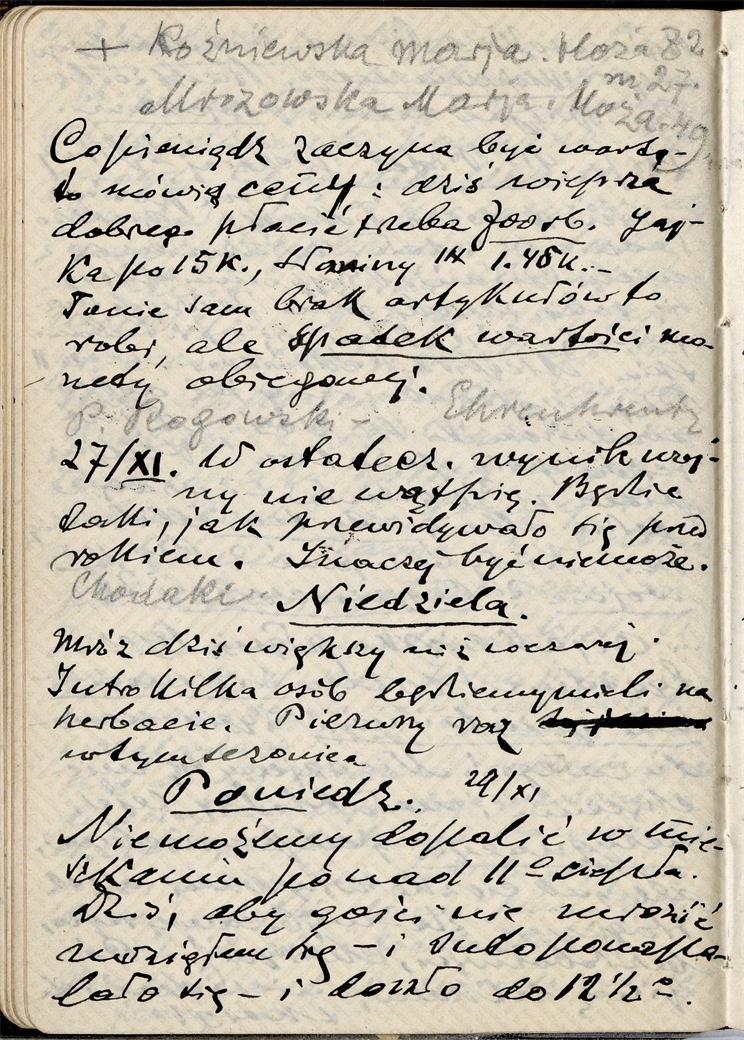 + Koźniewska Marja. Hoża 82
m 27.
Mrozowska Marja. Hoża 40
Co pieniądz zaczyna być warty –
to mówią ceny: dziś wieprza
dobrego płacić trzeba 700 rb. Jaj-
ka po 15 k., słoniny 1.45 k. –
Tanie sam brak artykułów to
robi, ale spadek wartości mo-
nety obiegowej.
P. Rogowski – Ehrenkreutz
27/XI. W ostatecz. wynik woj-
ny nie wątpię. Będzie
taki, jak przewidywało się przed
rokiem. Inaczej być nie może.
Chodaki
Niedziela.
Mróz dziś większy niż wczoraj.
Jutro kilka osób będziemy mieli na
herbacie. Pierwszy raz
w tym sezonie
Poniedz. 29/XI
Nie możemy dopalić w mie-
szkaniu ponad 11° ciepła.
Dziś, aby gości nie mrozić
się – i suto ponapa-
lało się – i doszło do 12 ½°.